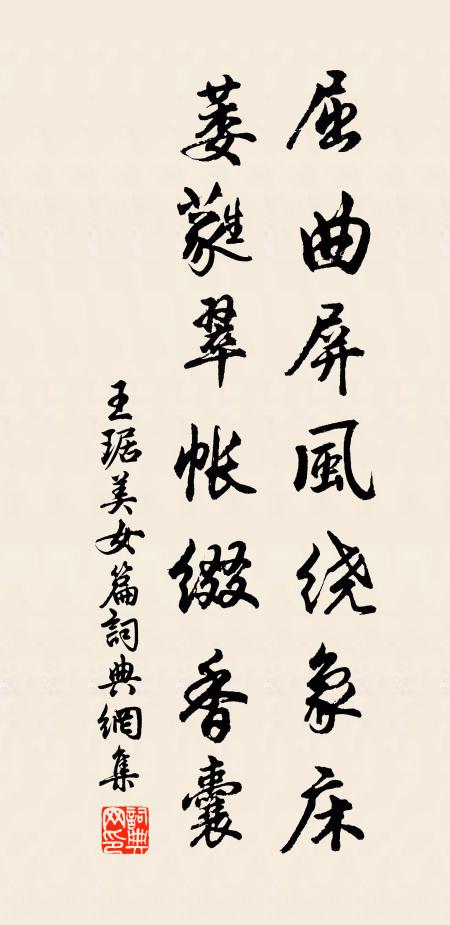 屈曲屏風绕象床
萎蕤翠帐缀香囊
王琚美女篇詞典網集
詞典网印